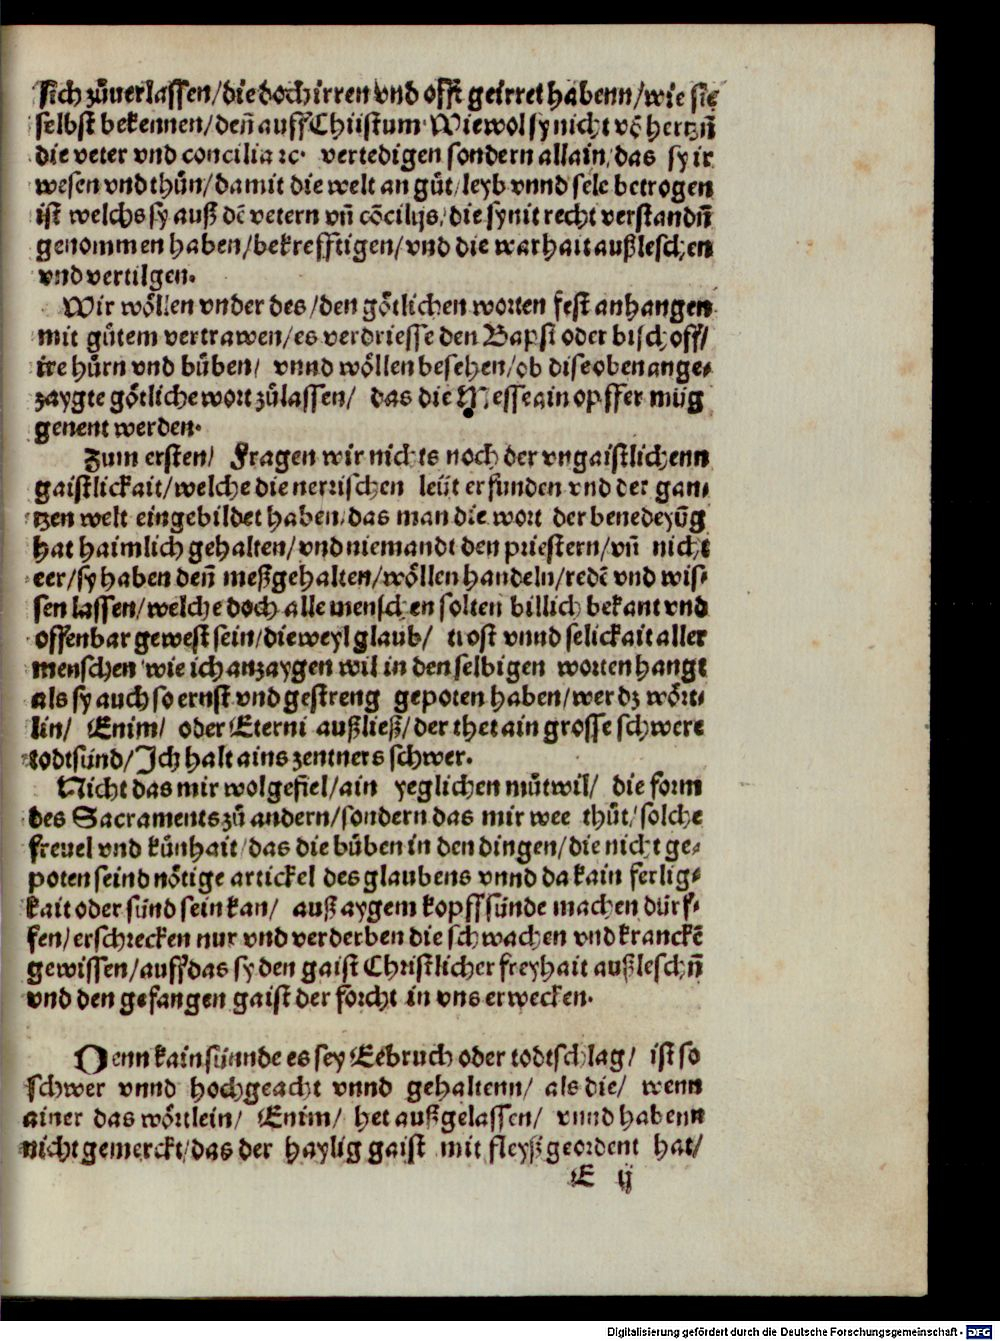 sich zůuerlassen/die doch irren vnd offt geirret habenn/wie sie
selbst bekennen/deñ auff Christum. Wiewol sy nicht võ hertzñ
die veter vnd concilia ꝛc. vertedigen sondern allain/das sy ir
wesen vnd thůn/damit die welt an gůt/leyb vnnd sele betrogen
ist welchs sy auß dẽ vetern vñ cõcilijs/die sy nit recht verstandñ
genommen haben/bekrefftigen/vnd die warhait außleschen
vnd vertilgen.
Wir wöllen vnder des/den götlichen worten fest anhangen
mit gůtem vertrawen/es verdriesse den Bapst oder bischoff/
ire hůrn vnd bůben/ vnnd wöllen besehen/ob dise oben ange⸗
zaygte götliche wort zůlassen/ das die Messe ain opffer müg
genent werden.
Zum ersten/ Fragen wir nichts noch der vngaistlichenn
gaistlickait/welche die nerrischen leüt erfunden vnd der gan⸗
tzen welt eingebildet haben/das man die wort der benedeyũg
hat haimlich gehalten/vnd niemandt den priestern/vñ nicht
eer/sy haben deñ meßgehalten/wöllen handeln/redẽ vnd wis⸗
sen lassen/welche doch alle menschen solten billich bekant vnd
offenbar gewest sein/dieweyl glaub/ trost vnnd selickait aller
menschen wie ich anzaygen wil in den selbigen worten hangt
als sy auch so ernst vnd gestreng gepoten haben/wer dz wört⸗
lin/ Enim/ oder Eterni außließ/der thet ain grosse schwere
todtsünd/Ich halt ains zentners schwer.
Nicht das mir wolgefiel/ain yeglichen můtwil/ die form
des Sacraments zů andern/sondern das mir wee thůt/solche
freuel vnd künhait/das die bůben in den dingen/die nicht ge⸗
poten seind nötige artickel des glaubens vnnd da kain ferlig⸗
kait oder sünd sein kan/ auß aygem kopff sünde machen dürf⸗
fen/erschrecken nur vnd verderben die schwachen vnd kranckẽ
gewissen/auff das sy den gaist Christlicher freyhait außleschñ
vnd den gefangen gaist der forcht in vns erwecken.
Denn kain sünnde es sey Eebruch oder todtschlag/ ist so
schwer vnnd hochgeacht vnnd gehaltenn/ als die/ wenn
ainer das wörtlein/ Enim/ het außgelassen/ vnnd habenn
nicht gemerckt/das der haylig gaist mit fleyß geordent hat/
E ij
Digitalisierung gefördert durch die Deutsche Forschungsgemeinschaft - DFG